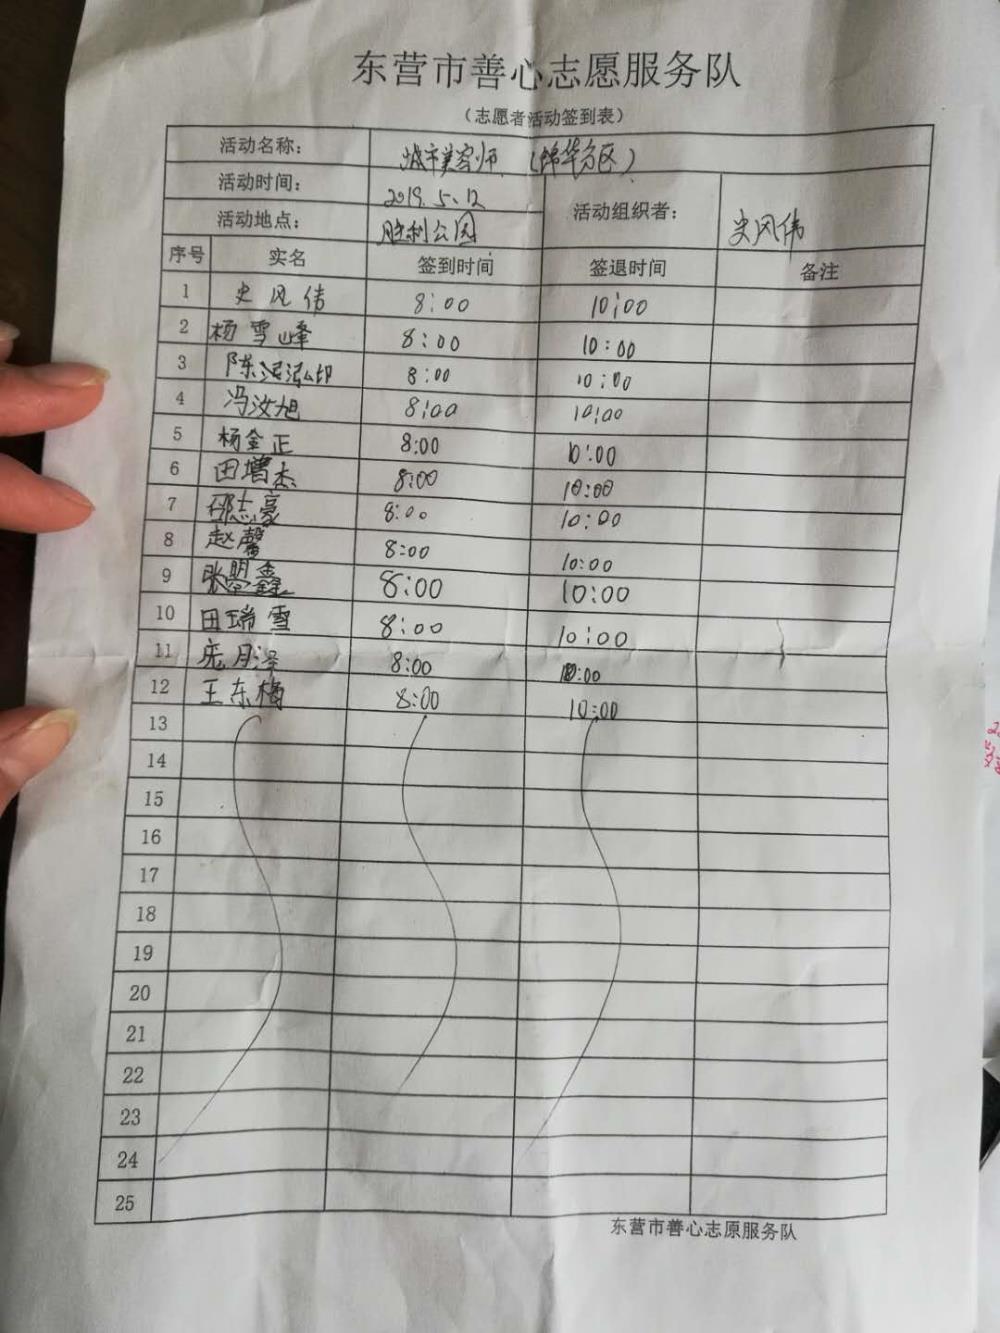 东营市善心志愿服务队
（志愿者活动签到表）
活动名称： 城市美容师（锦华分区）
活动时间： 2019.5.12 活动组织者： 史风伟
活动地点： 胜利公园
序号 实名 签到时间 签退时间 备注
1 史风伟 8:00 10:00
2 杨雪峰 8:00 10:00
3 陈 8:00 10:00
4 冯汝旭 8:00 10:00
5 杨金正 8:00 10:00
6 田增杰 8:00 10:00
7 邵志豪 8:00 10:00
8 赵馨 8:00 10:00
9 张盟鑫 8:00 10:00
10 田瑞雪 8:00 10:00
11 庞月泽 8:00 10:00
12 王东梅 8:00 10:00
13
14
15
16
17
18
19
20
21
22
23
24
25
东营市善心志原服务队